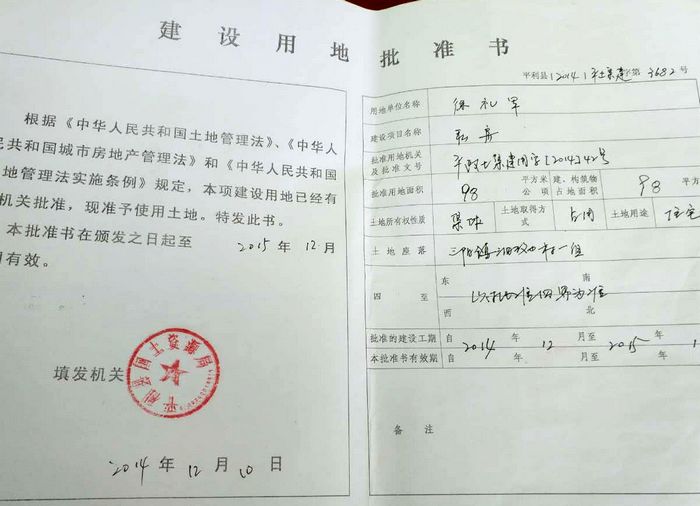 建设用地批准书
根据《中华人民共和国土地管理法》、《中华人
民共和国城市房地产管理法》和《中华人民共和国
地管理法实施条例》规定，本项建设用地已经有
机关批准，现准予使用土地。特发此书。
本批准书在颁发之日起至 2015 年 12 月
有效。
平利县国土资源局
填发机关
2014 年 12 月 10 日
平利县（2014）平土集建字第3682号
用地单位名称 徐礼军
建设项目名称 私房
批准用地机关及批准文号 平政土集建用字[2014]42号
批准用地面积 98 平方米 公顷 建、构筑物占地面积 98 平方
土地所有权性质 集体 土地取得方式 占用 土地用途 住宅
土地座落 三阳镇 村一组
四至 东 南 西 北 以实地 四界为准
批准的建设工期 自 2014 年 12 月至 2015 年 1
本批准书有效期 自 年 月至 年
备注